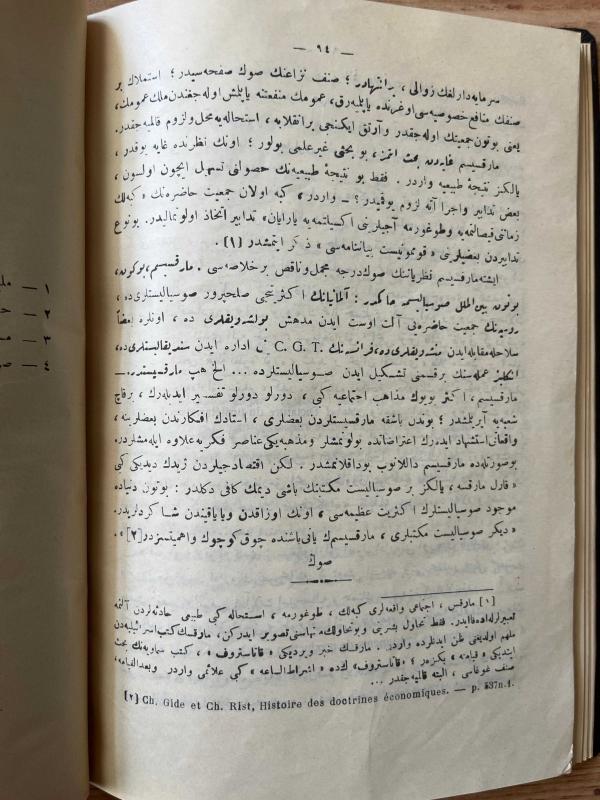 — ٩٤ —
سرمایه‌دارلغك زوالی، بر انتهادر؛ صنف نزاعنك صوك صفحه سیدر؛ استملاك بر
صنفك منافع خصوصیه‌سی اوغرنده یاپیله‌رق، عمومك منفعتنه یاپلمش اوله‌جغندن ملك عمومك،
یعنی بوتون جمعیتك اوله‌جقدر وآرتق ایكنجی برانقلابه، استحاله‌یه محل ولزوم قالمیه‌جقدر.
مارقسیسم غایه‌دن بحث ایتمز، بو بحثی غیرعلمی بولور؛ اونك نظرنده غایه یوقدر،
یالكز نتیجهٔ طبیعیه واردر. فقط بو نتیجهٔ طبیعیه‌نك حصولنی تسهیل ایچون اولسون،
بعض تدابیر واجرا آته لزوم یوقمیدر؟ — واردر، كبه اولان جمعیت حاضره‌نك «كبه‌لك
زماننی قیصالتمه‌یه وطوغورمه آجیلرینی اكسیلتمه‌یه یارایان» تدابیر اتخاذ اولونمالیدر. بونوع
تدابیردن بعضیلرینی «قومونیست بیاننامه‌سی» ذكر ایتمشدر (١).
ایشته مارقسیسم نظریاتنك صوك درجه مجمل وناقص برخلاصه‌سی. مارقسیسم، بوكون،
بوتون بین‌الملل سوسیالیسمه حاكمدر: آلمانیانك اكثرتجی صلحپرور سوسیالیستلری ده،
روسیه‌نك جمعیت حاضره‌یی آلت اوست ایدن مدهش بولشه‌ویقلری ده، اونلره بعضاً
سلاحله مقابله ایدن منشه‌ویقلری ده، فرانسه‌نك C. G. T. نی اداره ایدن سندیقالیستلری ده،
انكلیز عمله‌سنك برقسمنی تشكیل ایدن صوسیالیستلرده ... الخ هپ مارقسیستدر. —
مارقسیسم، اكثر بویوك مذاهب اجتماعیه كبی، دورلو دورلو تفسیر ایدیله‌رك، برقاچ
شعبه‌یه آیریلمشدر؛ بوندن باشقه مارقسیستلردن بعضلری، استادك افكارندن بعضلرینه،
واقعاتی استشهاد ایده‌رك اعتراضاتده بولونمشلر ومذهبه یكی عناصر فكریه علاوه ایله‌مشلردر.
بوصورتله‌ده مارقسیسم دالانوب بوداقلانمشدر. لكن اقتصادجیلردن ژیدك دیدیكی كبی
«قارل ماركسه، یالكز بر صوسیالیست مكتبنك باشی دیمك كافی دكلدر: بوتون دنیاده
موجود صوسیالیستلرك اكثریت عظیمه‌سی، اونك اوزاقدن ویایاقیندن شاكردلریدر.
«دیگر صوسیالیست مكتبلری، مارقسیسمك یانی باشنده چوق كوچوك واهمیتسزدر[٢]».
صوك
[١] ماركس، اجتماعی واقعه‌لری كبه‌لك، طوغورمه، استحاله كبی طبیعی حادثه‌لردن آلنمه
تعبیرلرله اده قائلدر. فقط تحاول بشرینی وبوتحاولك نهایتنی تصویر ایدركن، ماركسك كتب اسرائیلیه‌دن
ملهم اولدیغنی ظن ایدنلرده واردر. ماركسك خبر ویردیكی «قاتاستروف»، كتب سماویه‌نك بحث
ایتدیكی «قیامت» ه بكزه‌ر؛ «قاتاستروف» كده «اشراط الساعه» كبی علائمی واردر وبعدالقیامه،
صنف غوغاسی، البته قالمیه‌جقدر ...
[٢] Ch. Gide et Ch. Rist, Histoire des doctrines économiques. — p. 537n.1.
١ —
٢ —
٣ —
٤ —